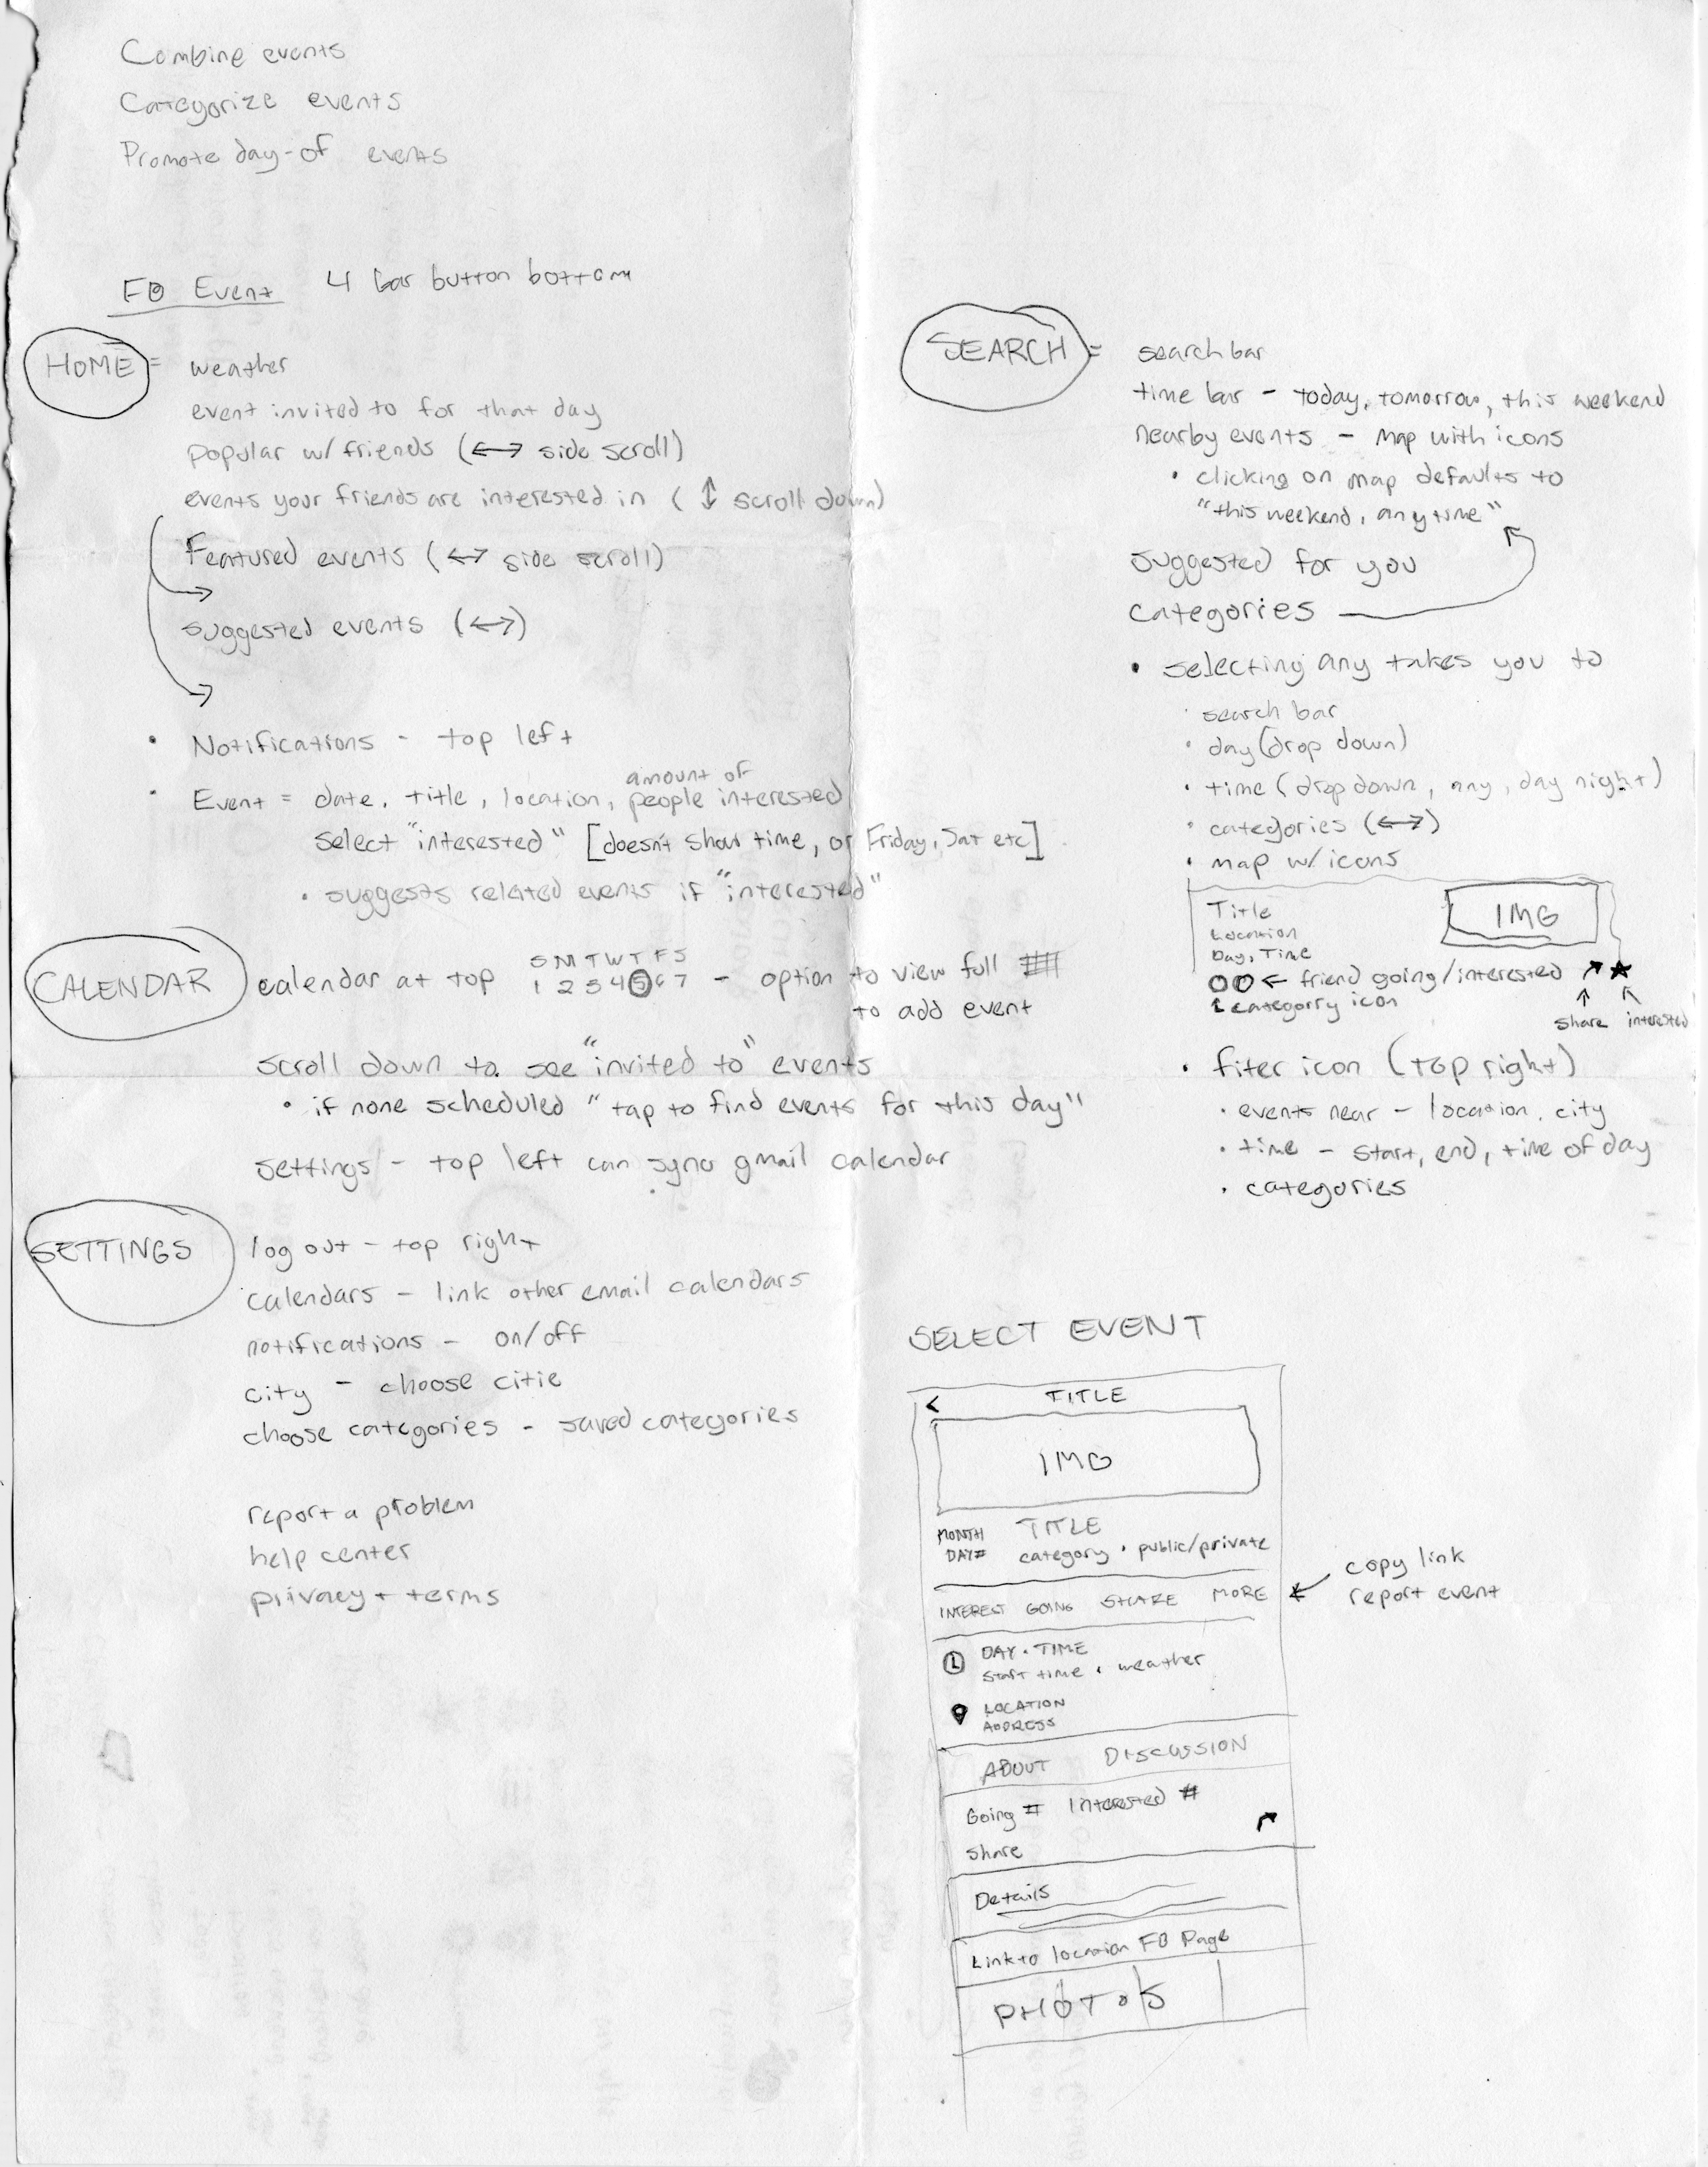 Combine events
Categorize events
Promote day-of events
FB Event 4 bar button bottom
HOME = weather
event invited to for that day
popular w/ friends (↔ side scroll)
events your friends are interested in (↕ scroll down)
Featured events (↔ side scroll)
suggested events (↔)
• Notifications - top left
amount of
• Event = date, title, location, people interested
select "interested" [doesn't show time, or Friday, Sat etc]
• suggests related events if "interested"
S M T W T F S
CALENDAR calendar at top 1 2 3 4 5 6 7 - option to view full
to add event
scroll down to see "invited to" events
• if none scheduled "tap to find events for this day"
settings - top left can sync gmail calendar
SETTINGS log out - top right
calendars - link other email calendars
notifications - on/off
city - choose citie
choose categories - saved categories
report a problem
help center
privacy + terms
SEARCH = search bar
time bar - today, tomorrow, this weekend
nearby events - map with icons
• clicking on map defaults to
"this weekend, any time"
suggested for you
categories
• selecting any takes you to
• search bar
• day (drop down)
• time (drop down, any, day night)
• categories (↔)
• map w/ icons
Title
IMG
Location
Day, Time
← friend going/interested
category icon
share interested
• fiter icon (top right)
• events near - location, city
• time - start, end, time of day
• categories
SELECT EVENT
< TITLE
IMG
MONTH TITLE
DAY# category • public/private
INTEREST GOING SHARE MORE ← copy link
report event
DAY • TIME
start time • weather
LOCATION
ADDRESS
ABOUT DISCUSSION
Going # Interested #
share
Details
Link to location FB Page
PHOTOS